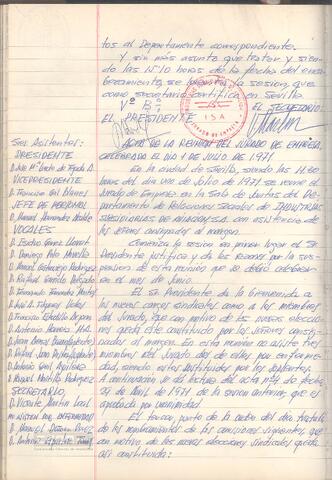 tos al Departamento correspondiente.
Y sin más asunto que tratar y siendo
las 15'10 horas de la fecha del enca-
bezamiento se levanta la sesion que
como secretario certifica en Sevilla
Vº Bº
EL PRESIDENTE
EL SECRETARIO
ISA
JURADO DE EMPRESA
ACTA DE LA REUNION DEL JURADO DE EMPRESA,
CELEBRADA EL DIA 1 DE JULIO DE 1971
Sres Asistentes:
PRESIDENTE
VICEPRESIDENTE
D. Francisco Gil Blanes
JEFE DE PERSONAL
D. Manuel Hernandez
VOCALES
D. Domingo
D. Manuel Rodriguez
D. Rafael
D. Fernando Fernandez
D. José A.
D. Francisco
D. Antonio Herrera
D. Juan
D. Rafael
D. Antonio Gil Aguilera
D. Manuel Rodriguez
SECRETARIO
D. Vicente Martin Leal
NO ASISTEN POR ENFERMEDAD
D. Manuel Perez
D. Antonio
En la ciudad de Sevilla, siendo las 14.00
horas del dia uno de Julio de 1971 se reune el
Jurado de Empresa en la Sala de Juntas del De-
partamento de Relaciones Sociales de INDUSTRIAS
SUBSIDIARIAS DE AVIACION S.A. con asistencia de
los señores consignados al margen.
Comienza la sesion en primer lugar el Sr
Presidente justifica y da las razones por la sus-
pension de esta reunion que se debió celebrar
en el mes de Junio.
El Sr. Presidente da la bienvenida a
los nuevos cargos sindicales como a los miembros
del Jurado, que con motivo de las nuevas eleccio-
nes queda este constituido por los señores consti-
nados al margen. En esta reunión no asiste tres
miembros del Jurado dos de ellos por enferme-
dad, siendo estos sustituidos por los suplentes
A continuacion se da lectura del acta nº 4 de fecha
27 de Abril de 1971 de la sesion anterior que es
aprobada por unanimidad.
El tercer punto de la orden del dia trata
de los nombramientos de las comisiones siguientes, que
con motivo de las nuevas elecciones sindicales queda
asi constituida: